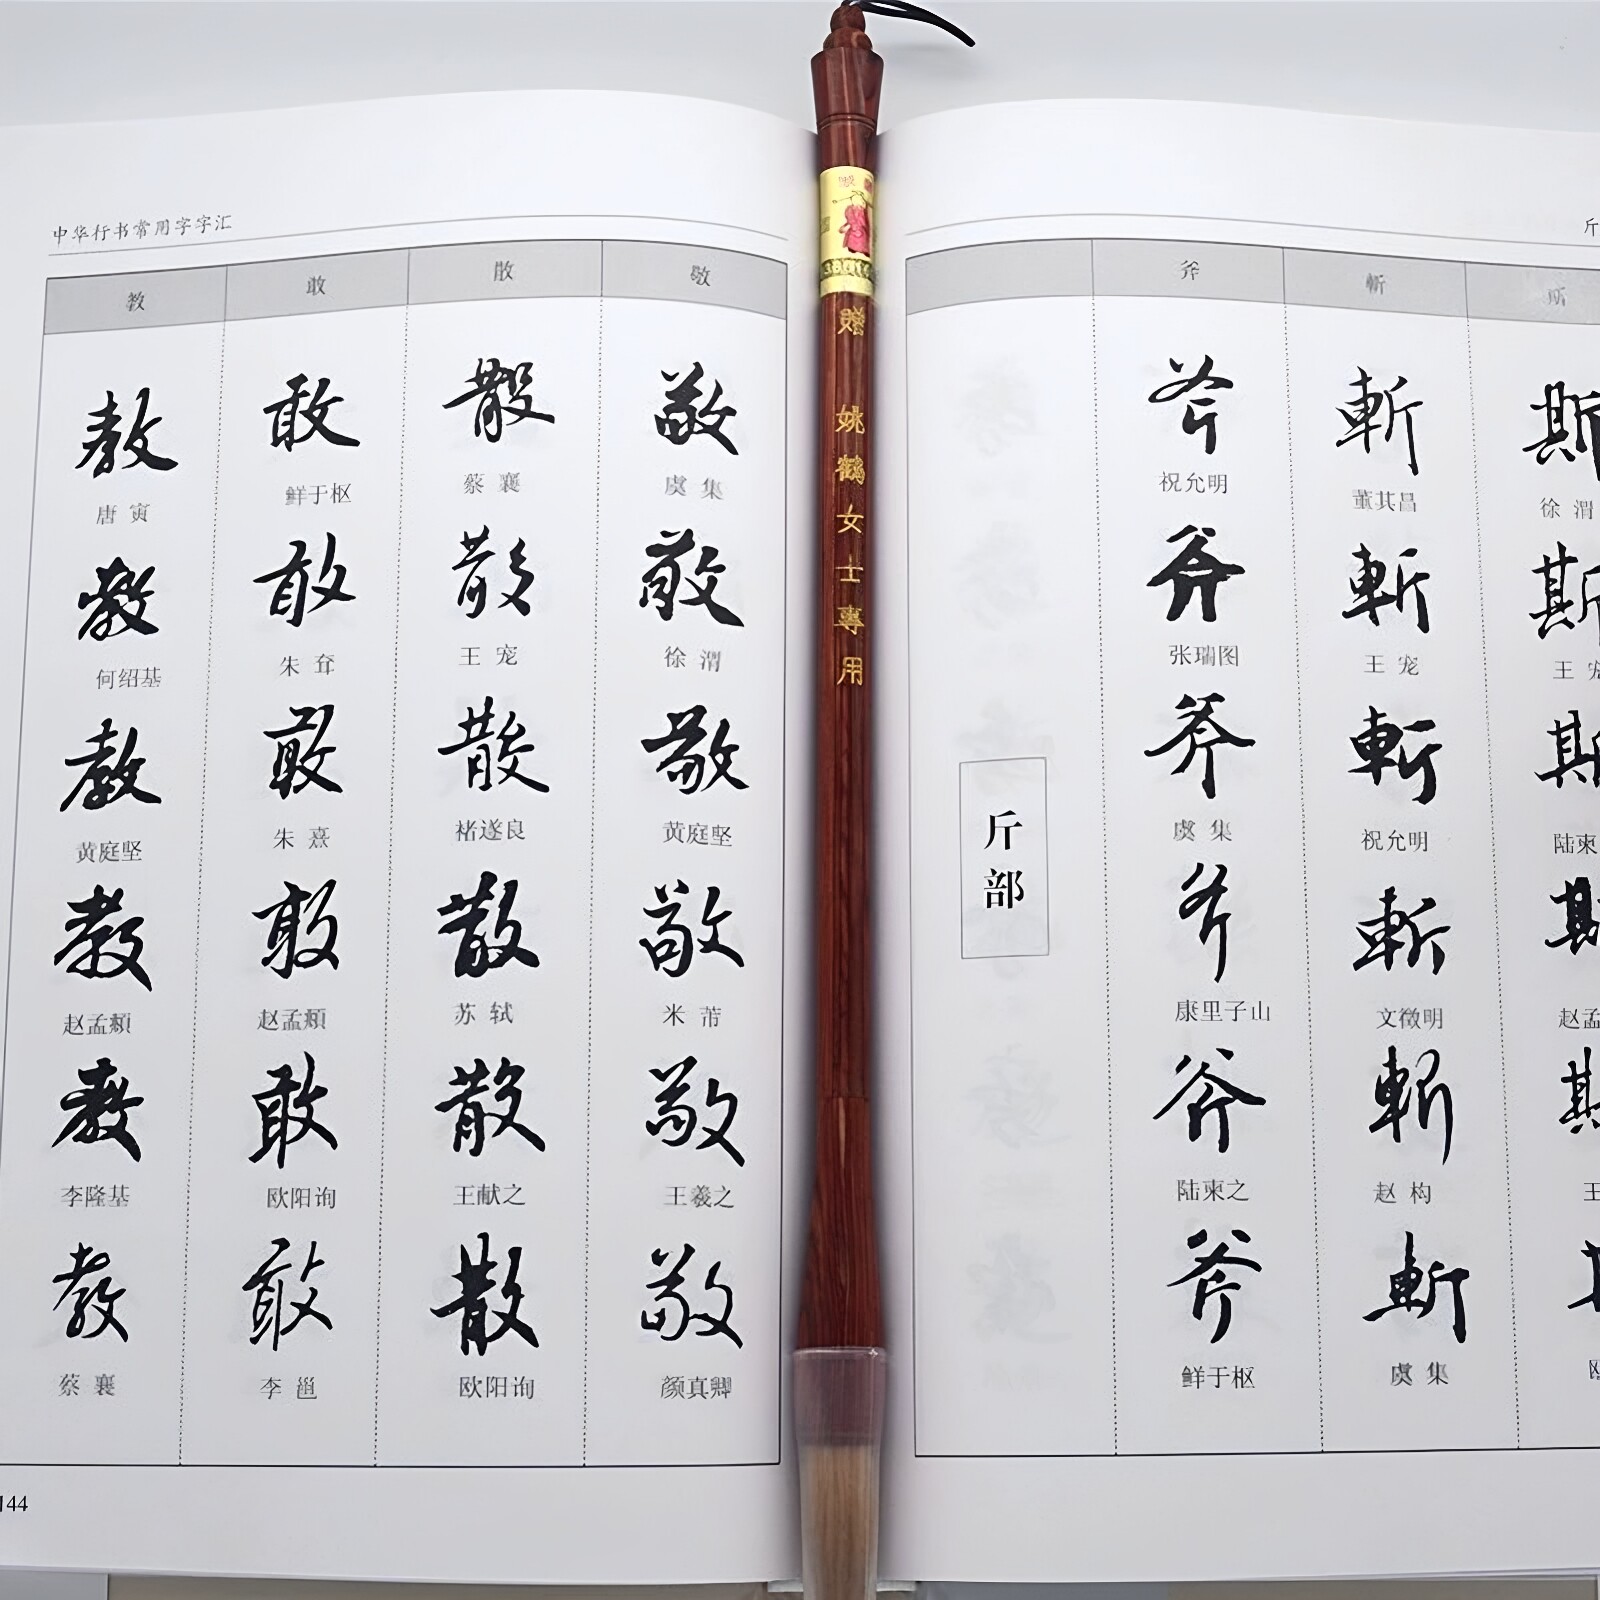 中华行书常用字字汇
教 敢 散 敬
教 敢 散 敬
唐寅 鲜于枢 蔡襄 虞集
教 敢 散 敬
何绍基 朱耷 王宠 徐渭
教 敢 散 敬
黄庭坚 朱熹 褚遂良 黄庭坚
教 敢 散 敬
赵孟頫 赵孟頫 苏轼 米芾
教 敢 散 敬
李隆基 欧阳询 王献之 王羲之
教 敢 散 敬
蔡襄 李邕 欧阳询 颜真卿
144
贈 姚鶴女士專用
斤
斧 斬 斯
斤部
斧 斬 斯
祝允明 董其昌 徐渭
斧 斬 斯
张瑞图 王宠 王宠
斧 斬 斯
虞集 祝允明 陆柬
斧 斬 斯
康里子山 文徵明 赵孟
斧 斬 斯
陆柬之 赵构 王
斧 斬
鲜于枢 虞集